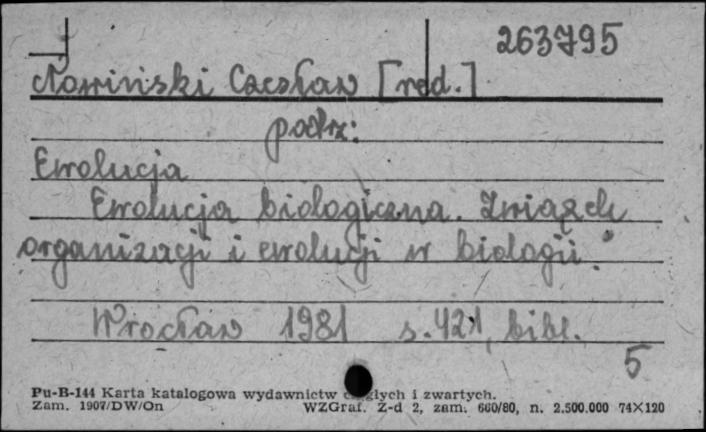 263795
Nowiński Czesław [red.]
patrz:
Ewolucja
Ewolucja biologiczna. Związek
organizacji i ewolucji w biologii.
Wrocław 1981 s. 421, bibl.
5
Pu-B-144 Karta katalogowa wydawnictw ciągłych i zwartych.
Zam. 1907/DW/On WZGraf. Z-d 2, zam. 660/80, n. 2.500.000 74×120